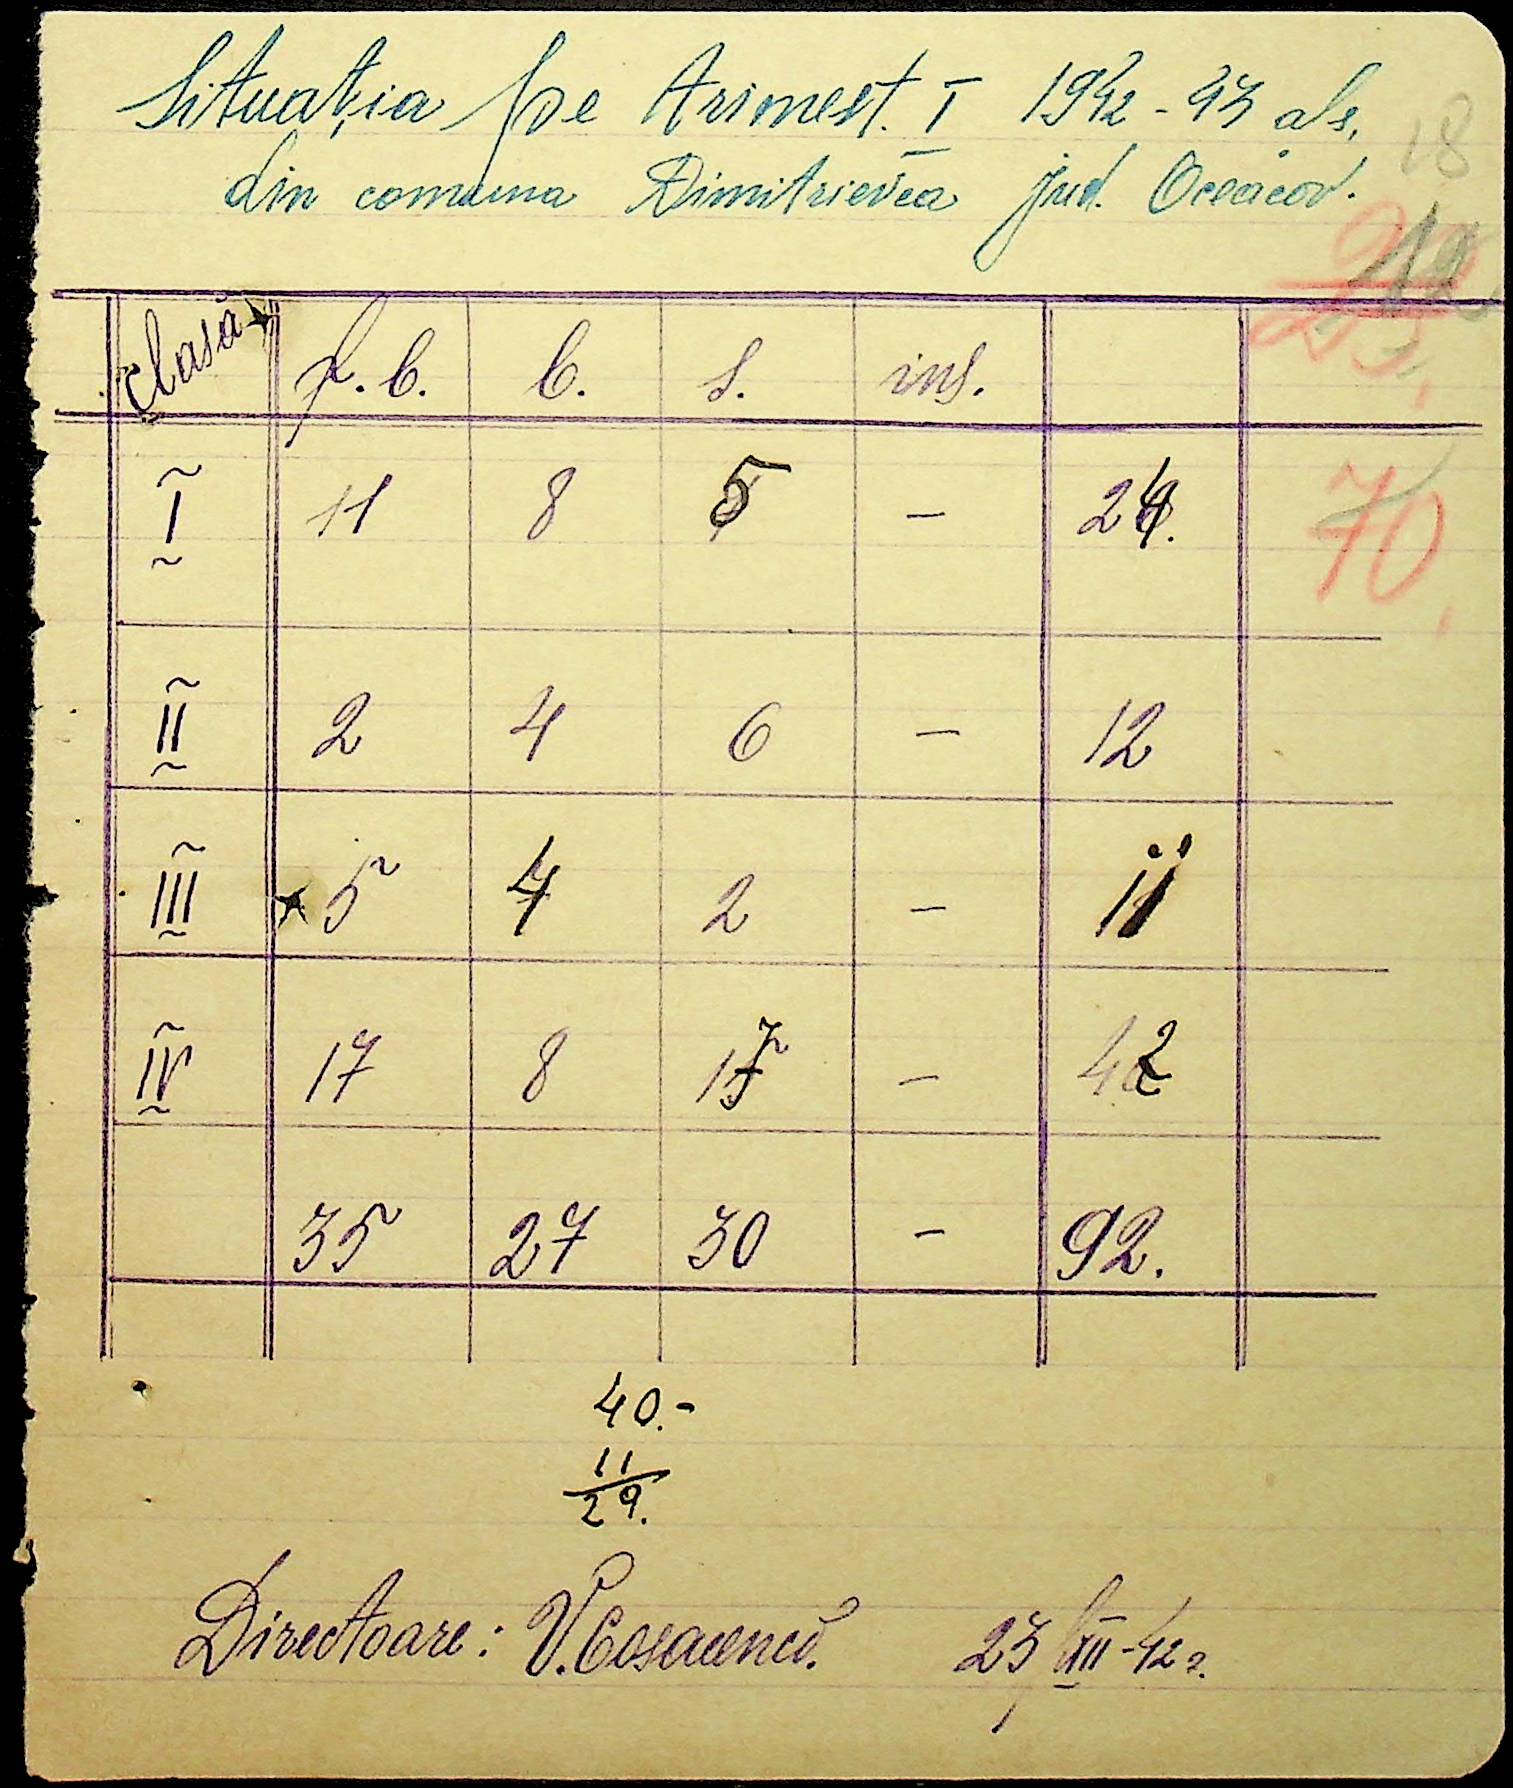 Situația pe trimest. I 1942-43 a/s.
din comuna Dimitrievca jud. Oceacov.
18
clasa f.b. b. s. ins.
I 11 8 5 - 24.
70.
II 2 4 6 - 12
III 5 4 2 - 11
IV 17 8 17 - 42
35 27 30 - 92.
40.-
11
29.
Directoare: V. 23/XII-42